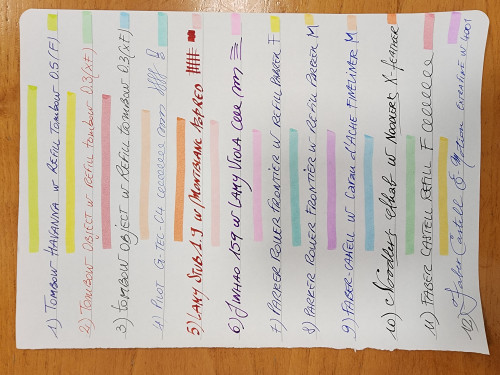 1) TOMBOW HAVANNA W REFILL TOMBOW 0.5 (F)
2) TOMBOW OBJECT W REFILL TOMBOW 0.3 (XF)
3) TOMBOW OBJECT W REFILL TOMBOW 0.3 (XF)
4) PILOT G-TEC-C4
5) LAMY STUB 1.9 W/ MONTBLANC
6) JINHAO 159 W LAMY VIOLA
7) PARKER ROLLER FRONTIER W REFILL PARKER F
8) PARKER ROLLER FRONTIER W REFILL PARKER M
9) FABER-CASTELL W CARAN D'ACHE FINELINER M
10) Noodlers W NOODLERS X FEATHER
11) FABER CASTELL REFILL F
12) Faber Castell E-Motion